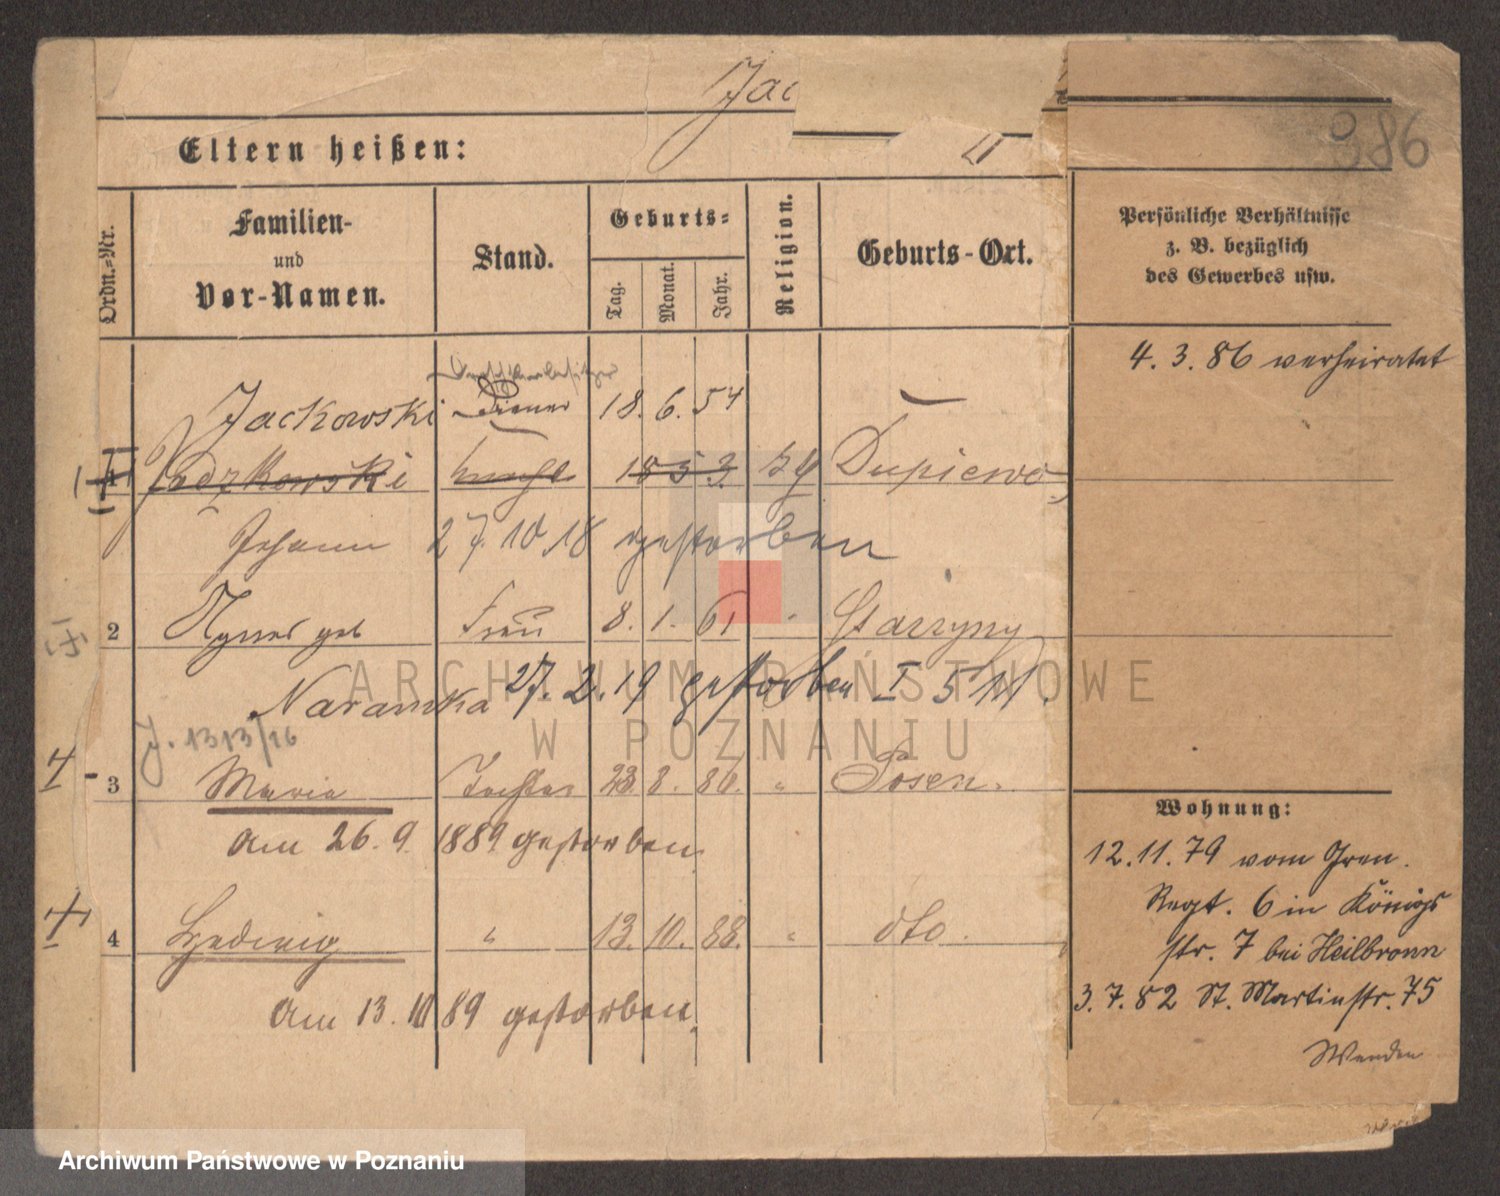 Jac
386
Eltern heißen:
Ordn.-Nr.
Familien-
und
Vor-Namen.
Stand.
Geburts-
Tag.
Monat.
Jahr.
Religion.
Geburts-Ort.
Persönliche Verhältnisse
z. B. bezüglich
des Gewerbes usw.
4. 3. 86 verheiratet
Jackowski Diener 18. 6. 54
1853 Dupiewo
Johann 27. 10. 18 gestorben
2 Agnes geb Frau 8. 1. 61 Starzyny
Naramska 27. 2. 19 gestorben I
J. 1313/16
3 Maria Tochter 23. 8. 86. " Posen.
am 26. 9. 1889 gestorben.
4 Hedwig " 13. 10. 88. " dto.
am 13. 10 89 gestorben.
Wohnung:
12. 11. 79 vom Gren.
Regt. 6 in Königs
str. 7 bei Heilbronn
3. 7. 82 St. Martinstr. 75
Wenden
ARCHIWUM PAŃSTWOWE
W POZNANIU
Archiwum Państwowe w Poznaniu